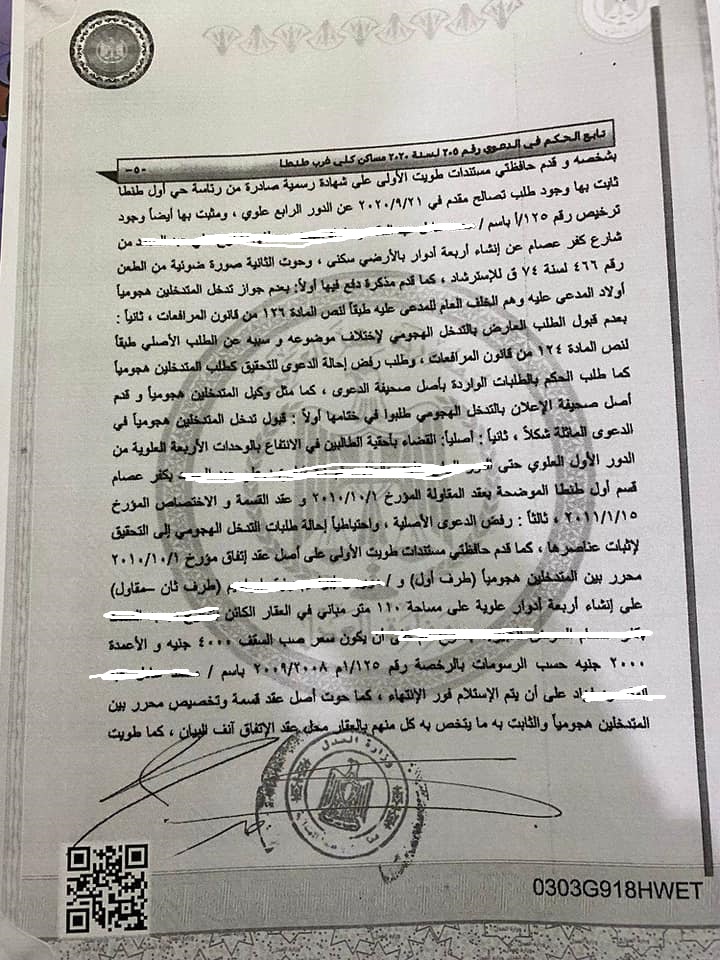 تابع الحكم في الدعوي رقم ٢٠٥ لسنة ٢٠٢٠ مساكن كلي غرب طنطا
-٥-
بشخصه و قدم حافظتي مستندات طويت الأولى على شهادة رسمية صادرة من رئاسة حي أول طنطا
ثابت بها وجود طلب تصالح مقدم في ٢٠٢٠/٩/٢١ عن الدور الرابع علوي ، ومثبت بها أيضاً وجود
ترخيص رقم ١٢٥/أ باسم / من
شارع كفر عصام عن إنشاء أربعة أدوار بالأرضي سكني ، وحوت الثانية صورة ضوئية من الطعن
رقم ٤٦٦ لسنة ٧٤ ق للإسترشاد ، كما قدم مذكرة دفع فيها أولاً: بعدم جواز تدخل المتدخلين هجومياً
أولاد المدعى عليه وهم الخلف العام للمدعى عليه طبقاً لنص المادة ١٢٦ من قانون المرافعات ، ثانياً :
بعدم قبول الطلب العارض بالتدخل الهجومي لإختلاف موضوعه و سببه عن الطلب الأصلي طبقاً
لنص المادة ١٢٤ من قانون المرافعات ، وطلب رفض إحالة الدعوى للتحقيق كطلب المتدخلين هجومياً
كما طلب الحكم بالطلبات الواردة بأصل صحيفة الدعوى ، كما مثل وكيل المتدخلين هجومياً و قدم
أصل صحيفة الإعلان بالتدخل الهجومي طلبوا في ختامها أولاً : قبول تدخل المتدخلين هجومياً في
الدعوى الماثلة شكلاً ، ثانياً : أصلياً: القضاء بأحقية الطالبين في الانتفاع بالوحدات الأربعة العلوية من
الدور الأول العلوي حتى بكفر عصام
قسم أول طنطا الموضحة بعقد المقاولة المؤرخ ٢٠١٠/١٠/١ و عقد القسمة و الاختصاص المؤرخ
٢٠١١/١/١٥ ، ثالثاً : رفض الدعوى الأصلية ، واحتياطياً إحالة طلبات التدخل الهجومي إلى التحقيق
لإثبات عناصرها ، كما قدم حافظتي مستندات طويت الأولى على أصل عقد إتفاق مؤرخ ٢٠١٠/١٠/١
محرر بين المتدخلين هجومياً (طرف أول) و / (طرف ثان –مقاول)
على إنشاء أربعة أدوار علوية على مساحة ١١٠ متر مباني في العقار الكائن
أن يكون سعر صب السقف ٤٠٠٠ جنيه و الأعمدة
٢٠٠٠ جنيه حسب الرسومات بالرخصة رقم ١/١٢٥م ٢٠٠٩/٢٠٠٨ باسم /
على أن يتم الإستلام فور الإنتهاء ، كما حوت أصل عقد قسمة وتخصيص محرر بين
المتدخلين هجومياً والثابت به ما يتخص به كل منهم بالعقار محل عقد الإتفاق آنف البيان ، كما طويت
وزارة العدل
0303G918HWET